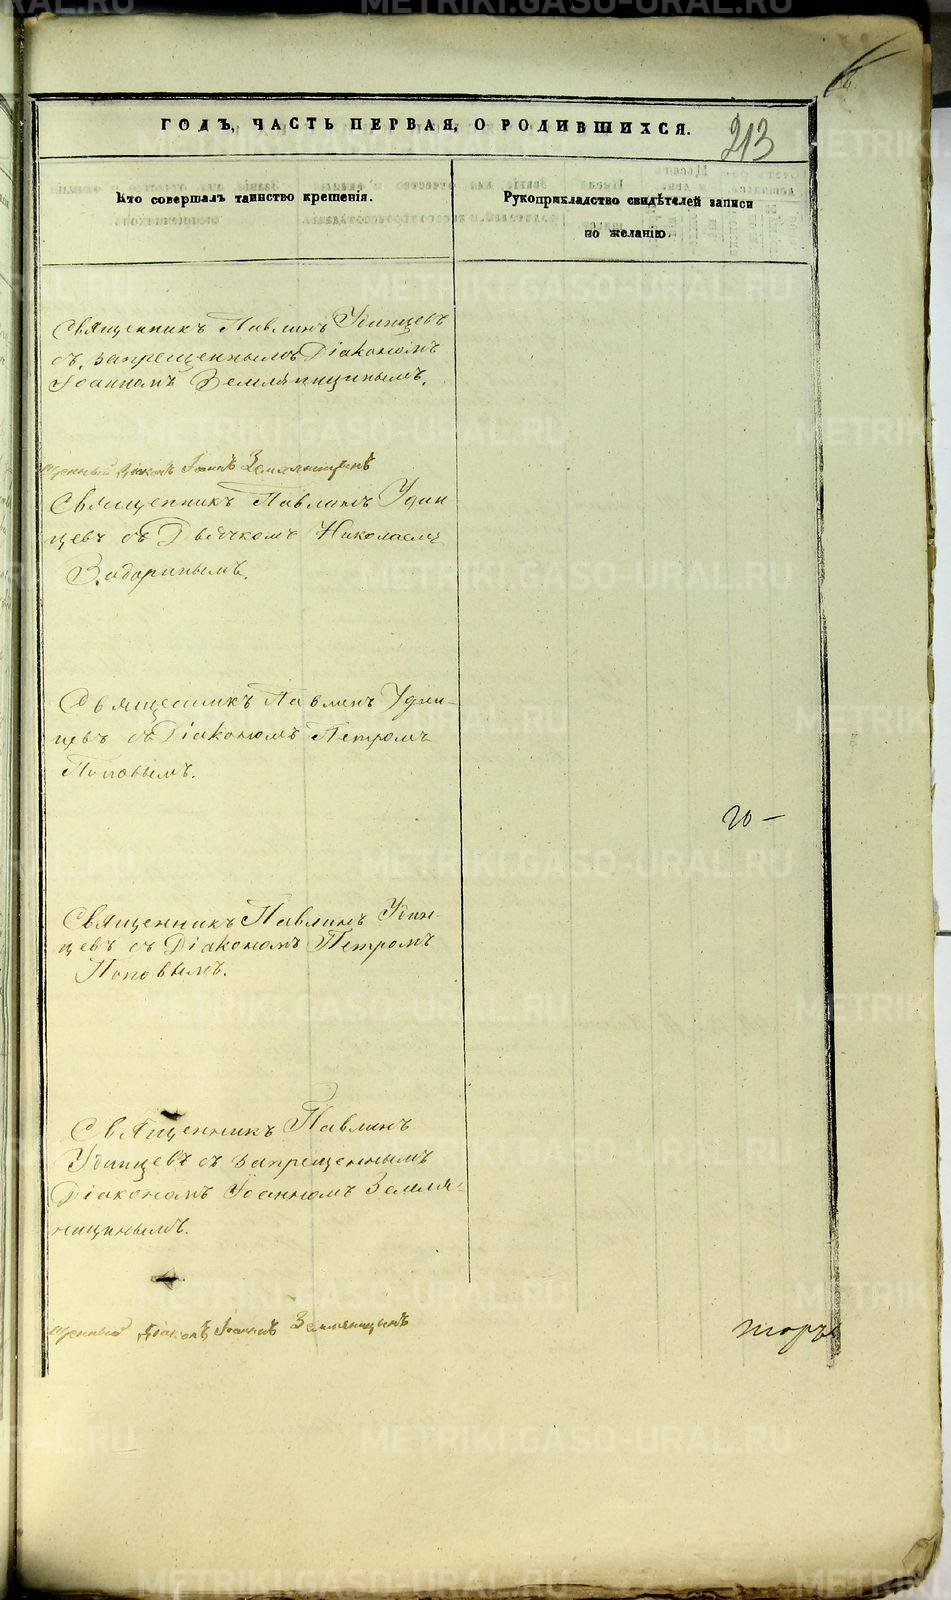 ГОДЪ, ЧАСТЬ ПЕРВАЯ, О РОДИВШИХСЯ.
213
Кто совершалъ таинство крещенія.
Рукоприкладство свидѣтелей записи
по желанію.
Священникъ Павлинъ Удинцевъ
съ запрещеннымъ Діакономъ
Іоанномъ Земляницинымъ.
щенный Діаконъ Іоаннъ Земляницинъ
Священникъ Павлинъ Удин
цевъ съ Дьячкомъ Николаемъ
Священникъ Павлинъ Удин-
цевъ съ Діакономъ Петромъ
Поповымъ.
20 —
Священникъ Павлинъ Удин-
цевъ съ Діакономъ Петромъ
Поповымъ.
Священникъ Павлинъ
Удинцевъ съ запрещеннымъ
Діакономъ Іоанномъ Земля-
ницинымъ.
щенный Діаконъ Іоаннъ Земляницинъ
METRIKI.GASO-URAL.RU